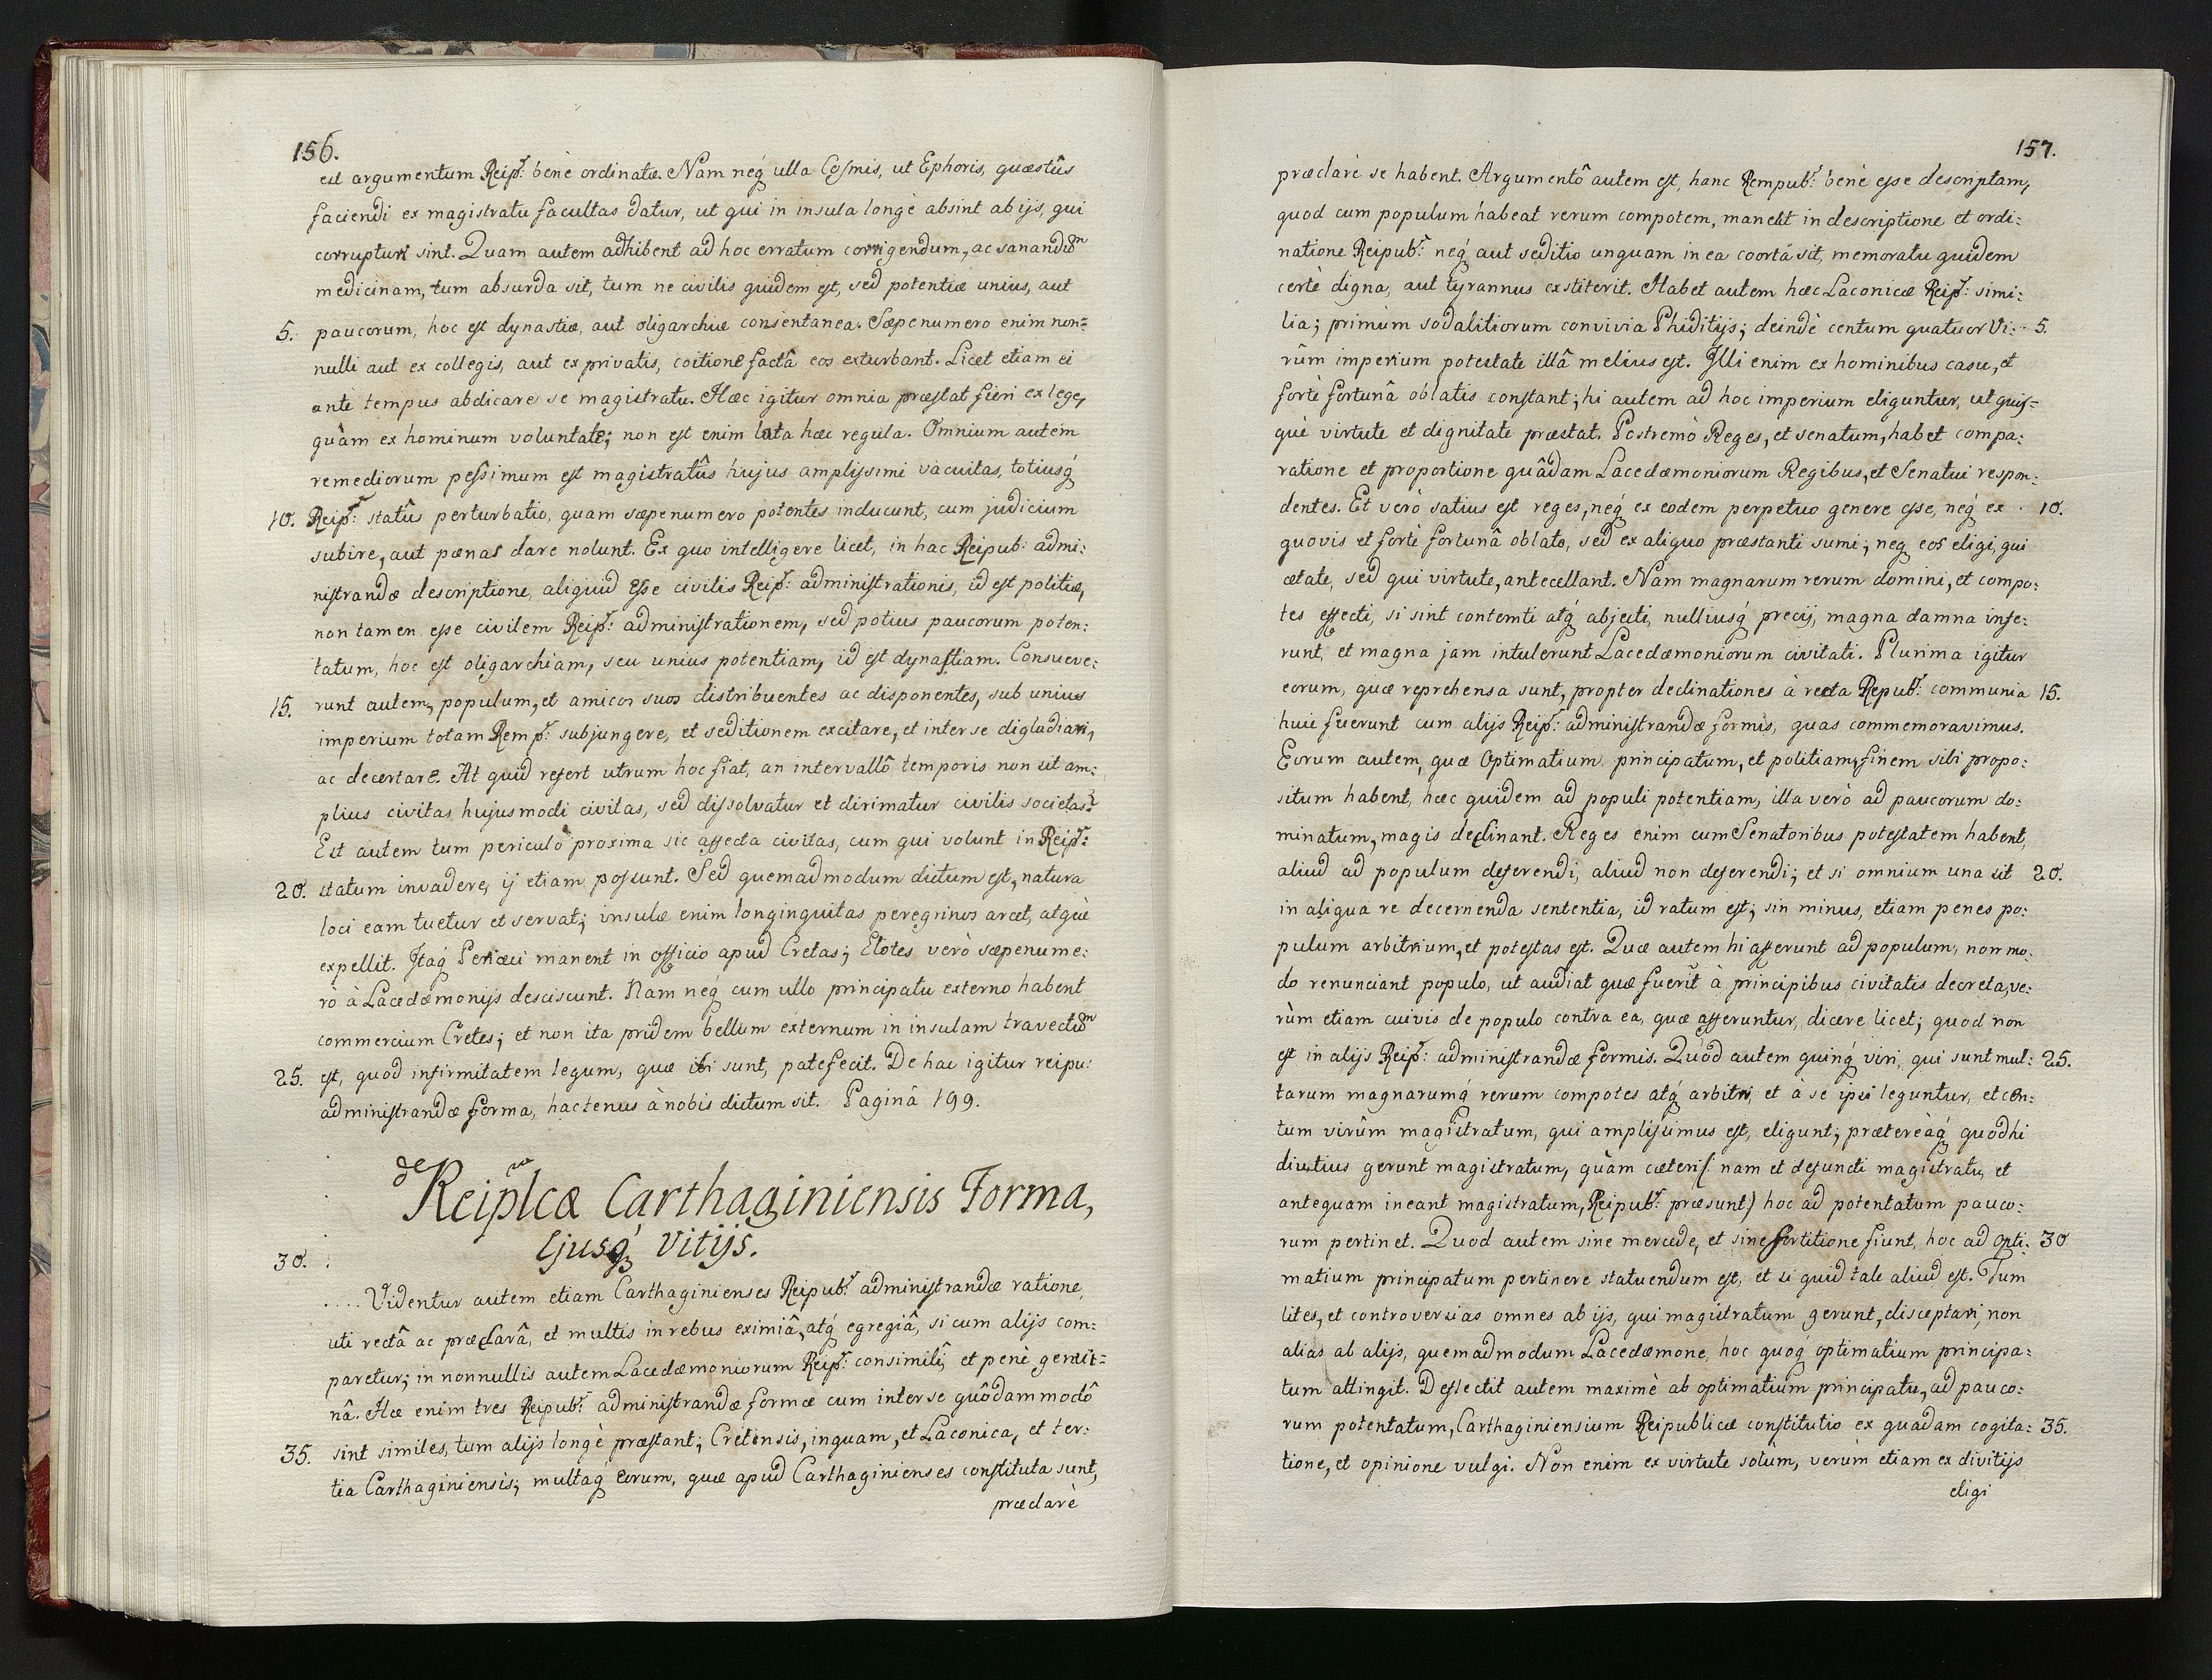 156.
est argumentum Reip: benè ordinatæ. Nam neq́ ulla Cosmis, ut Ephoris, quæstûs
faciendi ex magistratu facultas datur, ut qui in insula longè absint ab ijs, qui
corrupturi sint. Quam autem adhibent ad hoc erratum corrigendum, ac sanandũm
medicinam, tum absurda sit, tum ne civilis quidem est, sed potentiæ unius, aut
5. paucorum, hoc est dynastiæ, aut oligarchiæ consentanea. Sæpenumero enim non=
nulli aut ex collegis, aut ex privatis, coitione factâ eos exturbant. Licet etiam ei
antè tempus abdicare se magistratu. Hæc igitur omnia præstat fieri ex lege,
quàm ex hominum voluntate; non est enim lata hæc regula. Omnium autem
remediorum pessimum est magistratûs hujus amplissimi vacuitas, totiusq́
10. Reip: statûs perturbatio, quam sæpenumero potentes inducunt, cum judicium
subire, aut pœnas dare nolunt. Ex quo intelligere licet, in hac Reipub: admi:
nistrandæ descriptione, aliquid Esse civilis Reip: administrationis, id est politiæ,
non tamen esse civilem Reip: administrationem, sed potius paucorum poten:
tatum, hoc est oligarchiam, seu unius potentiam, id est dynastiam. Consueve:
15. runt autem, populum, et amicos suos distribuentes ac disponentes, sub unius
imperium totam Remp: subjungere, et seditionem excitare, et inter se digladiari,
ac decertare. At quid refert utrum hoc fiat, an intervallô temporis non sit am:
plius civitas hujusmodi civitas, sed dissolvatur et dirimatur civilis societas?
Est autem tum periculô proxima sic affecta civitas, cum qui volunt in Reip:
20. statum invadere, ij etiam possunt. Sed quemadmodum dictum est, natura
loci eam tuetur et servat; insulæ enim longinquitas peregrinos arcet, atquè
expellit. Itaq́ Periœci manent in officio apud Cretas; Elotes verò sæpenume:
rò à Lacedæmonijs desciscunt. Nam neq́ cum ullo principatu externo habent
commercium Cretes; et non ita pridem bellum externum in insulam travectũm
25. est, quod infirmitatem legum, quæ ibi sunt, patefecit. De hac igitur reipu:
administrandæ forma, hactenus à nobis dictum sit. Paginâ 199.
de Reiplcæ Carthaginiensis Forma,
30. Ejusq́ Vitijs.
.... Videntur autem etiam Carthaginienses Reipub: administrandæ ratione,
uti rectâ ac præclarâ, et multis in rebus eximiâ, atq́ egregiâ, si cum alijs com:
paretur; in nonnullis autem Lacedæmoniorum Reip: consimili, et penè germa=
nâ. Hæ enim tres Reipub: administrandæ formæ cum inter se quôdammodô
35. sint similes, tum alijs longè præstant; Cretensis, inquam, et Laconica, et ter:
tia Carthaginiensis; multaq́ eorum, quæ apud Carthaginienses constituta sunt,
præclarè
157.
præclarè se habent. Argumentô autem est, hanc Rempub: benè esse descriptam,
quod cum populum habeat rerum compotem, manet in descriptione et ordi:
natione Reipub: neq́ aut seditio unquam in ea coorta sit, memoratu quidem
certè digna, aut tyrannus exstiterit. Habet autem hæc Laconicæ Reip: simi:
lia; primùm sodalitiorum convivia Phiditijs; deindè centum quatuor Vi: 5.
rûm imperium potestate illâ melius est. Illi enim ex hominibus casu, et
fortè fortunâ oblatis constant; hi autem ad hoc imperium eliguntur, ut quis=
què virtute et dignitate præstat. Postremò Reges, et senatum, habet compa:
ratione et proportione quâdam Lacedæmoniorum Regibus, et Senatui respon:
dentes. Et verò satius est reges, neq́ ex eodem perpetuo genere esse, neq́ ex 10.
quovis et fortè fortunâ oblato, sed ex aliquo præstanti sumi; neq́ eos eligi, qui
ætate, sed qui virtute, antecellant. Nam magnarum rerum domini, et compo:
tes effecti, si sint contemti atq́ abjecti, nulliusq́ precij, magna damna infe:
runt, et magna jam intulerunt Lacedæmoniorum civitati. Plurima igitur
eorum, quæ reprehensa sunt, propter declinationes à recta Repub: communia 15.
huic fuerunt cum alijs Reip: administrandæ formis, quas commemoravimus.
Eorum autem, quæ Optimatium principatum, et politiam, finem sibi propo:
situm habent, hæc quidem ad populi potentiam, illa verò ad paucorum do:
minatum, magis declinant. Reges enim cum Senatoribus potestatem habent,
aliud ad populum deferendi, aliud non deferendi; et si omnium una sit 20.
in aliqua re decernenda sententia, id ratum est; sin minus, etiam penes po:
pulum arbitrium, et potestas est. Quæ autem hi afferunt ad populum, non mo:
do renunciant populo, ut audiat quæ fuerit à principibus civitatis decreta, ve:
rùm etiam cuivis de populo contra ea, quæ afferuntur, dicere licet; quod non
est in alijs Reip: administrandæ formis. Quòd autem quinq́ viri, qui sunt mul: 25.
tarum magnarumq́ rerum compotes atq́ arbitri, et à se ipsi leguntur, et cen:
tum virûm magistratum, qui amplissimus est, eligunt; prætereàq́ quòd hi
diutius gerunt magistratum, quàm cæteri (nam et defuncti magistratu, et
antequam ineant magistratum, Reipub: præsunt) hoc ad potentatum pauco:
rum pertinet. Quod autem sine mercede, et sine sortitione fiunt, hoc ad opti: 30
matium principatum pertinere statuendum est, et si quid tale aliud est. Tum
lites, et controversias omnes ab ijs, qui magistratum gerunt, disceptari, non
alias ab alijs, quemadmodum Lacedæmone, hoc quoq́ optimatium principa:
tum attingit. Deflectit autem maximè ab optimatium principatu, ad pauco:
rum potentatum, Carthaginiensium Reipublicæ constitutio ex quadam cogita: 35.
tione, et opinione vulgi. Non enim ex virtute solùm, verùm etiam ex divitijs
eligi